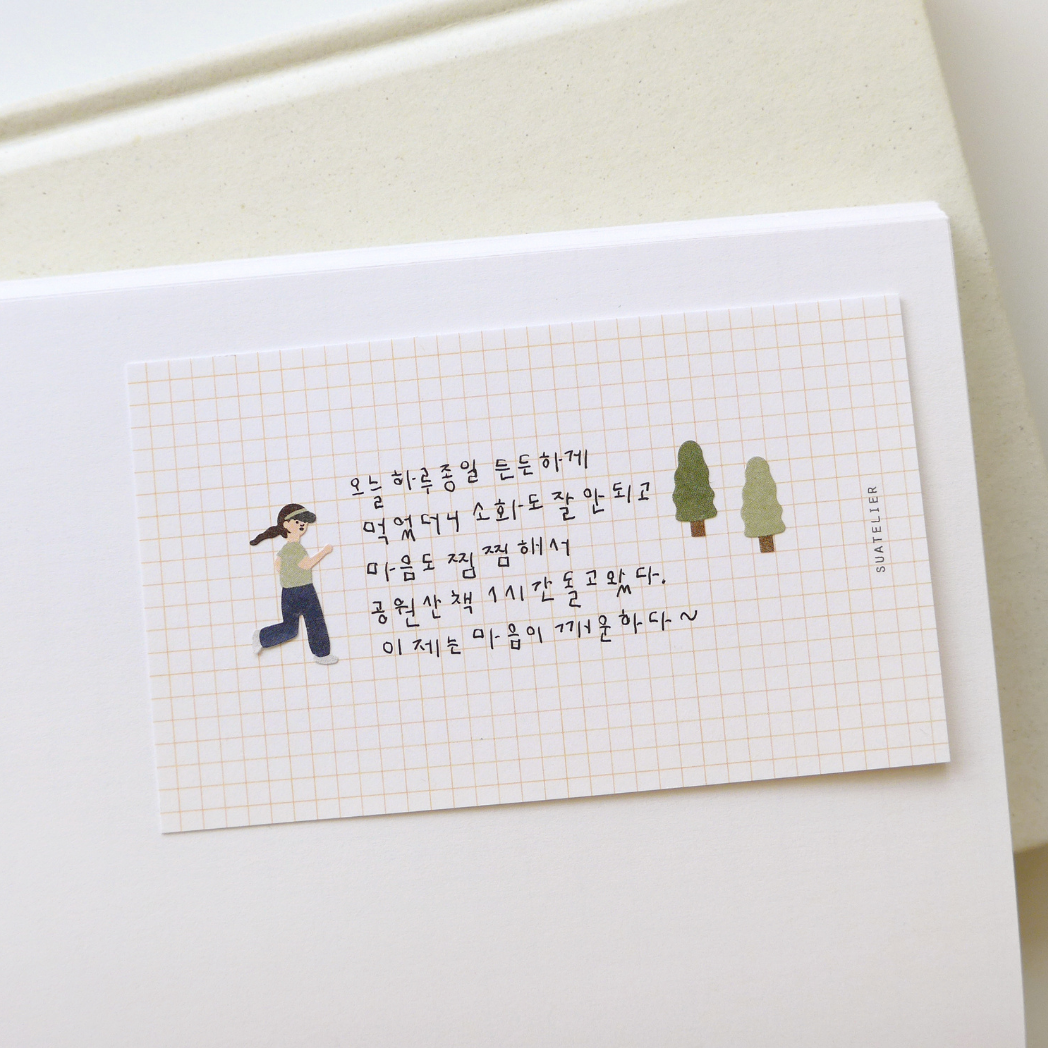 오늘 하루종일 든든하게
먹었더니 소화도 잘 안되고
마음도 찜찜해서
공원산책 1시간 돌고왔다.
이제는 마음이 개운하다~
SUATELIER